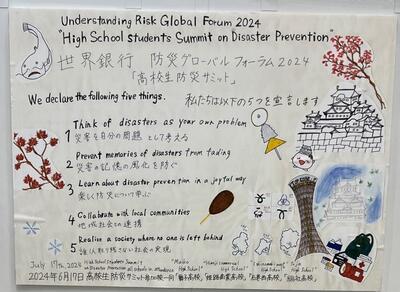 Understanding Risk Global Forum 2024
"High School Students Summit on Disaster Prevention"
世界銀行 防災グローバルフォーラム2024
「高校生防災サミット」
We declare the following five things. 私たちは以下の5つを宣言します
1 Think of disasters as your own problem
災害を自分の問題として考える
2 Prevent memories of disasters from fading
災害の記憶の風化を防ぐ
3 Learn about disaster prevention in a joyful way
楽しく防災について学ぶ
4 Collaborate with local communities
地域社会との連携
5 Realize a society where no one is left behind
誰一人取り残さない社会の実現
July 17th, 2024
High School Students Summit
on Disaster Prevention
"Maiko High School"
High School"
High School"
High School"
2024年6月17日 高校生防災サミット参加校一同